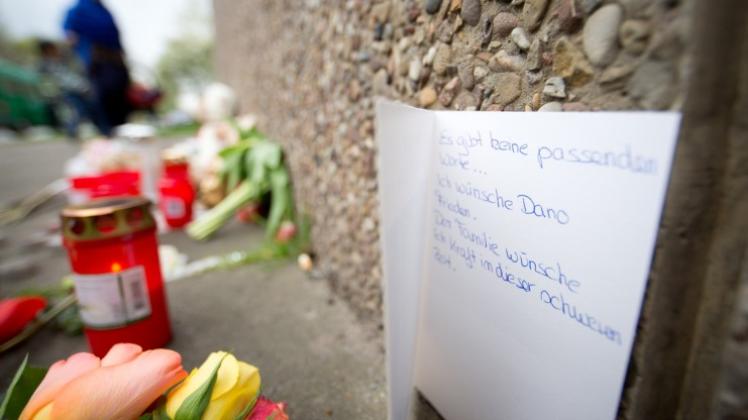 Es gibt keine passenden
Worte...
Ich wünsche Dano
Frieden.
Der Familie wünsche
ich Kraft in dieser schweren
Zeit.